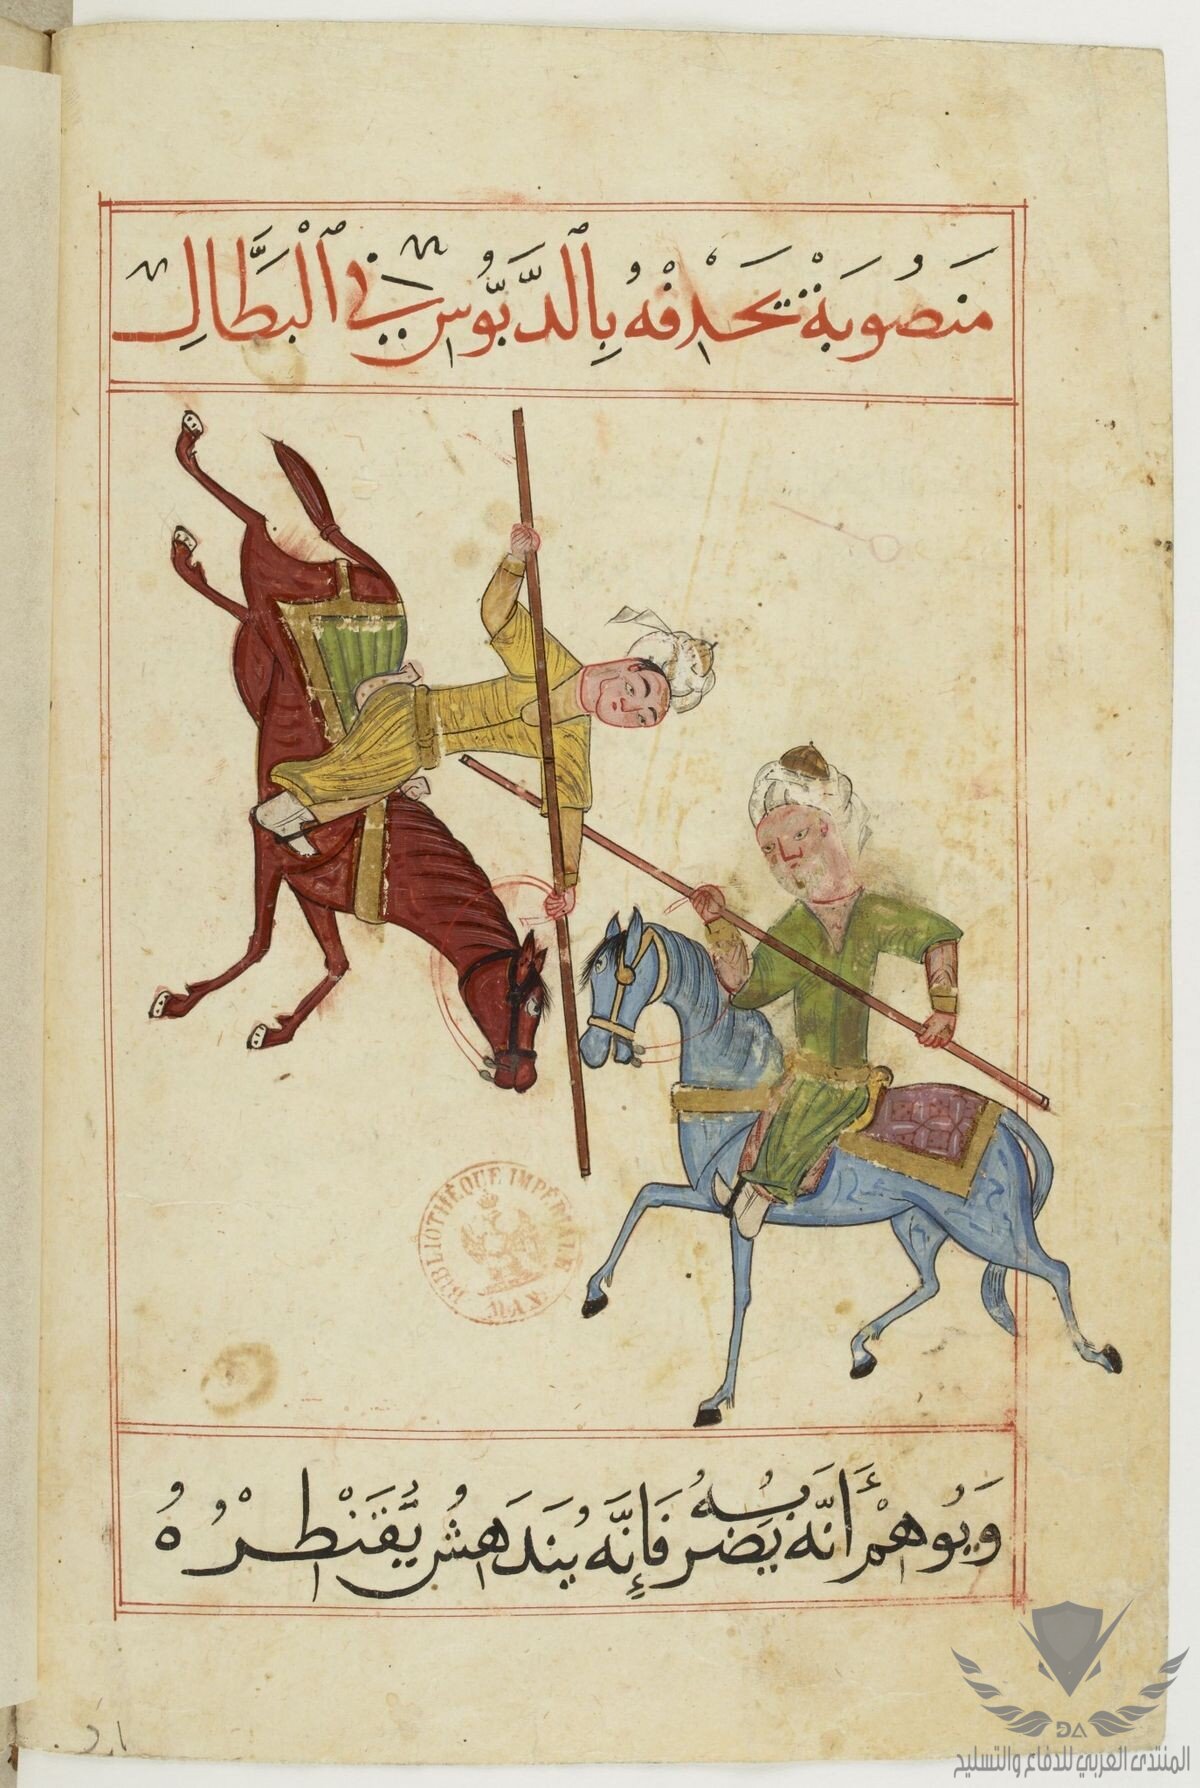 مَنصُوبَة تَحَدْفْهُ بِالدَّبُّوسْ فِي الْبَطَّالِ
وَيُوهِمْ أَنَّه يَضْربُهُ فَإِنَّه يَندَهِشُ يُقَنْطِرْهُ
BIBLIOTHÈQUE IMPÉRIALE
MAN.
DA
المنتدى العربي للدفاع والتسليح